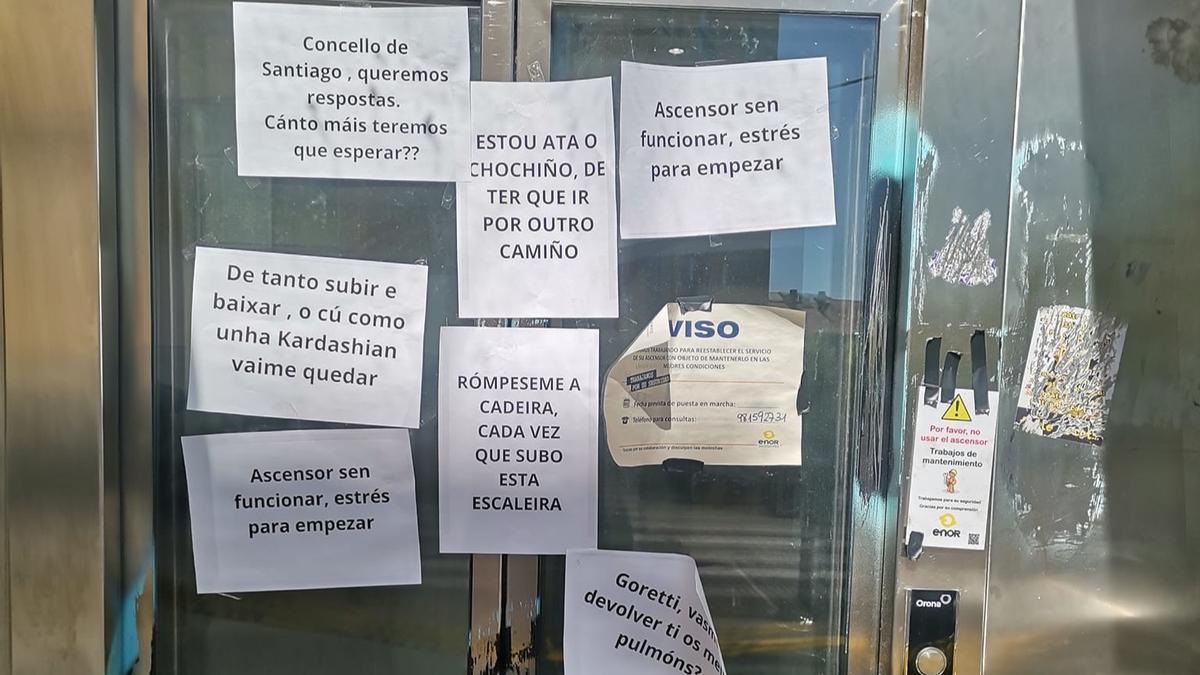 Concello de
Santiago , queremos
respostas.
Cánto máis teremos
que esperar??
ESTOU ATA O
CHOCHIÑO, DE
TER QUE IR
POR OUTRO
CAMIÑO
Ascensor sen
funcionar, estrés
para empezar
De tanto subir e
baixar , o cú como
unha Kardashian
vaime quedar
RÓMPESEME A
CADEIRA,
CADA VEZ
QUE SUBO
ESTA
ESCALEIRA
VISO
TRABAJANDO PARA REESTABLECER EL SERVICIO
DE SU ASCENSOR CON OBJETO DE MANTENERLO EN LAS
CONDICIONES
TRABAJAMOS
POR SU SEGURIDAD
Fecha prevista de puesta en marcha:
Teléfono para consultas: 981592731
enor
Ascensor sen
funcionar, estrés
para empezar
Goretti,
devolver ti os
pulmóns?
Por favor, no
usar el ascensor
Trabajos de
mantenimiento
Trabajamos para su seguridad
Gracias por su comprensión
enor
Orona